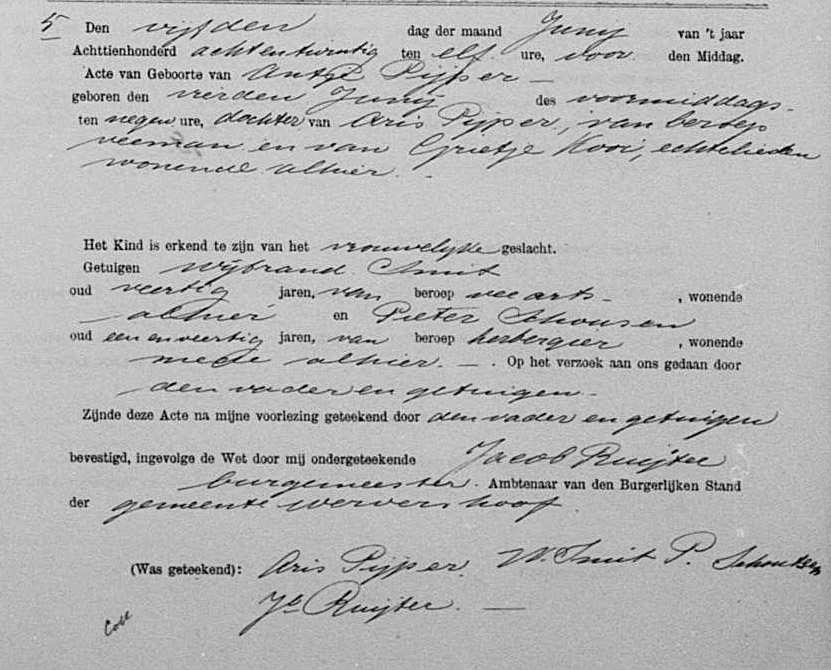 5 Den vijfden dag der maand Juny van 't jaar
Achttienhonderd achtentwintig ten elf ure, voor den Middag.
Acte van Geboorte van Antje Pijper —
geboren den vierden Juny des voormiddags
ten negen ure, dochter van Aris Pijper, van beroep
veeman en van Grietje Kooi, echtelieden
wonende alhier. -
Het Kind is erkend te zijn van het vrouwelijke geslacht.
Getuigen Wijbrand Smit
oud veertig jaren, van beroep veearts - , wonende
alhier en Pieter Schousen
oud een en veertig jaren, van beroep herbergier , wonende
mede alhier. — . Op het verzoek aan ons gedaan door
den vader en getuigen -
Zijnde deze Acte na mijne voorlezing geteekend door den vader en getuigen
bevestigd, ingevolge de Wet door mij ondergeteekende Jacob Ruijter
burgemeester . Ambtenaar van den Burgerlijken Stand
der gemeente Wervershoof
(Was geteekend): Aris Pijper. W. Smit P. Schoutsen
Jb Ruijter. —